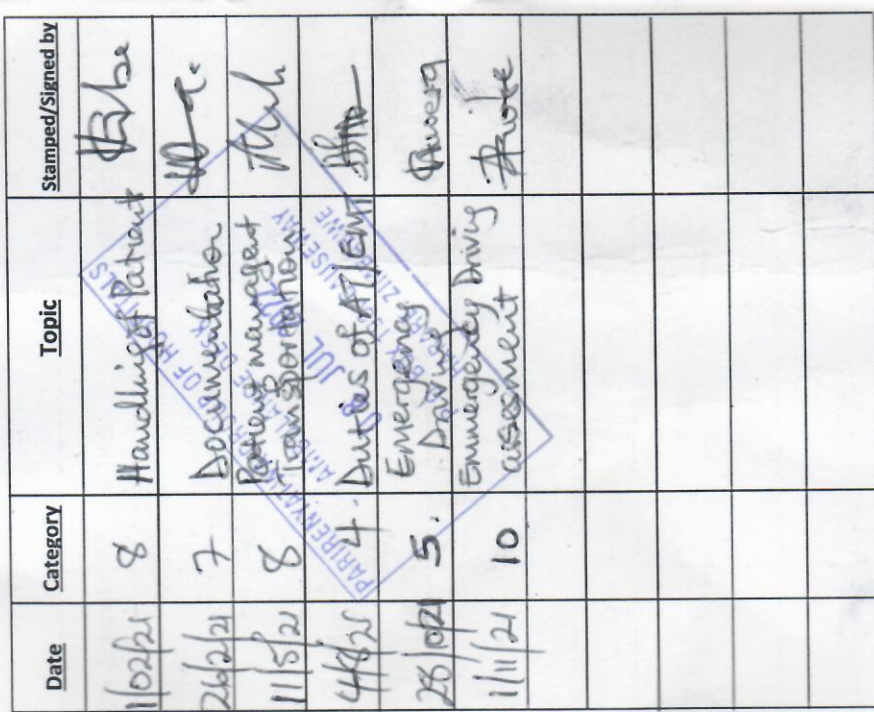 Date Category Topic Stamped/Signed by
1/02/21 8 Handling of Patient
26/2/21 7 Documentation
11/5/21 8 Patient managent
Transportation
4/8/21 4. Duties of AT/EMT
28/10/21 5. Emergency
Driving
1/11/21 10 Emmergency Driving
assesment
PARIRENYATWA GROUP OF HOSPITALS
AMBULANCE DESK
JUL
CAUSEWAY
ZIMBABWE